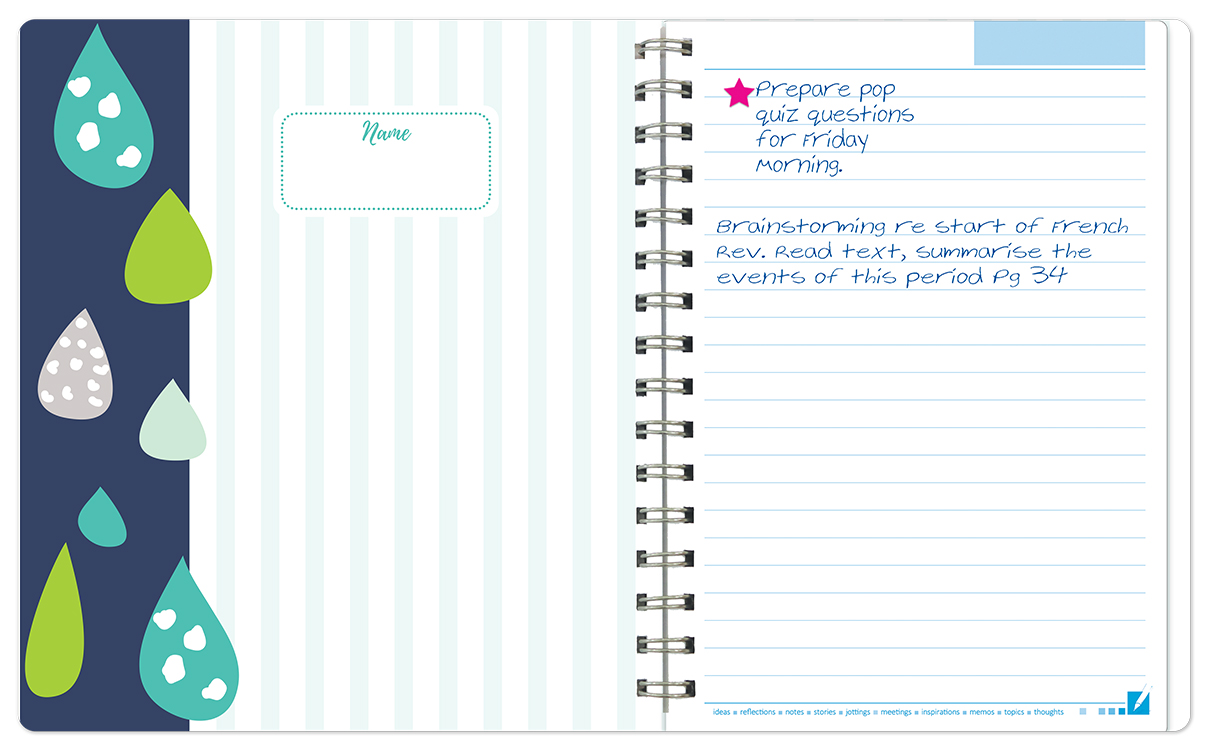 Name
Prepare pop
quiz questions
for Friday
Morning.
Brainstorming re start of French
Rev. Read text, summarise the
events of this period Pg 34
ideas ▪ reflections ▪ notes ▪ stories ▪ jottings ▪ meetings ▪ inspirations ▪ memos ▪ topics ▪ thoughts